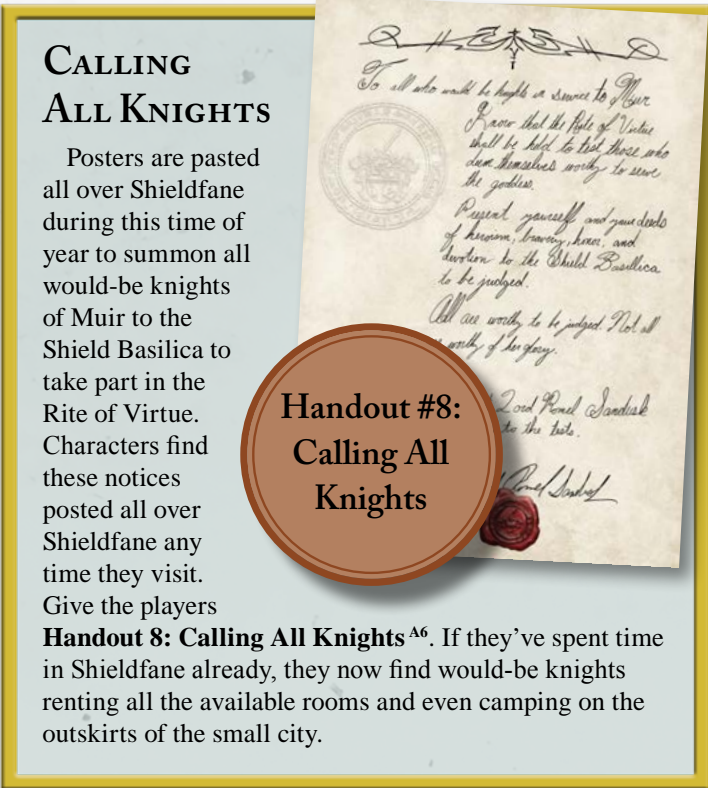 CALLING
ALL KNIGHTS
Posters are pasted
all over Shieldfane
during this time of
year to summon all
would-be knights
of Muir to the
Shield Basilica to
take part in the
Rite of Virtue.
Characters find
these notices
posted all over
Shieldfane any
time they visit.
Give the players
Handout 8: Calling All Knights A6. If they’ve spent time
in Shieldfane already, they now find would-be knights
renting all the available rooms and even camping on the
outskirts of the small city.
To all who would be knights in service to Muir
Know that the Rite of Virtue
shall be held to test those who
deem themselves worthy to serve
the goddess.
Present yourself and your deeds
of heroism, bravery, honor, and
devotion to the Shield Basilica
to be judged.
All are worthy to be judged. Not all
worthy of her glory.
Lord
to the tests.
Handout #8:
Calling All
Knights